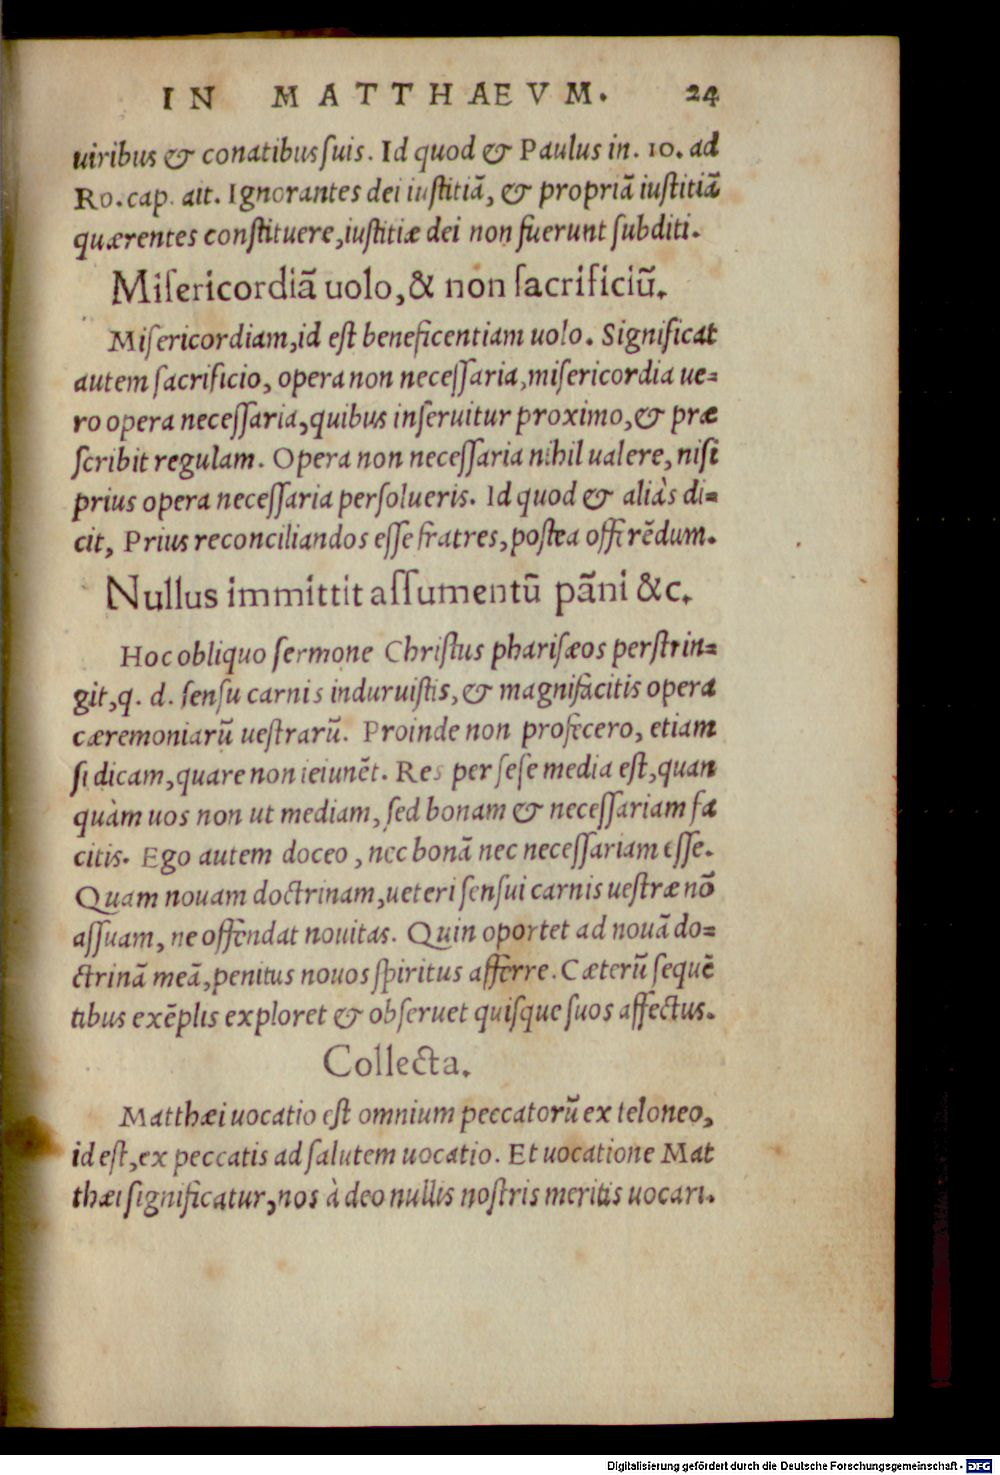 IN MATTHAEVM. 24
uiribus & conatibus suis. Id quod & Paulus in. 10. ad
Ro. cap. ait. Ignorantes dei iustitiã, & propriã iustitiã
quærentes constituere, iustitiæ dei non fuerunt subditi.
Misericordiã uolo, & non sacrificiũ.
Misericordiam, id est beneficentiam uolo. Significat
autem sacrificio, opera non necessaria, misericordia ue=
ro opera necessaria, quibus inseruitur proximo, & præ
scribit regulam. Opera non necessaria nihil ualere, nisi
prius opera necessaria persolueris. Id quod & aliàs di=
cit, Prius reconciliandos esse fratres, postea offerẽdum.
Nullus immittit assumentũ pãni &c.
Hoc obliquo sermone Christus pharisæos perstrin=
git, q. d. sensu carnis induruistis, & magnifacitis opera
cæremoniarũ uestrarũ. Proinde non profecero, etiam
si dicam, quare non ieiunẽt. Res per sese media est, quan
quàm uos non ut mediam, sed bonam & necessariam fa
citis. Ego autem doceo, nec bonã nec necessariam esse.
Quam nouam doctrinam, ueteri sensui carnis uestræ nõ
assuam, ne offendat nouitas. Quin oportet ad nouã do=
ctrinã meã, penitus nouos spiritus afferre. Cæterũ sequẽ
tibus exẽplis exploret & obseruet quisque suos affectus.
Collecta.
Matthæi uocatio est omnium peccatorũ ex teloneo,
id est, ex peccatis ad salutem uocatio. Et uocatione Mat
thæi significatur, nos à deo nullis nostris meritis uocari.
Digitalisierung gefördert durch die Deutsche Forschungsgemeinschaft - DFG